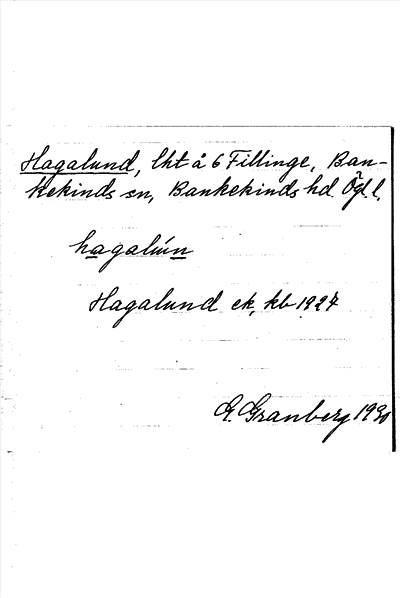 Hagalund, lht å 6 Fillinge, Ban-
kekinds sn, Bankekinds hd. Ögl.
hagalún
Hagalund ek, kb 1927
G. Granberg 1930